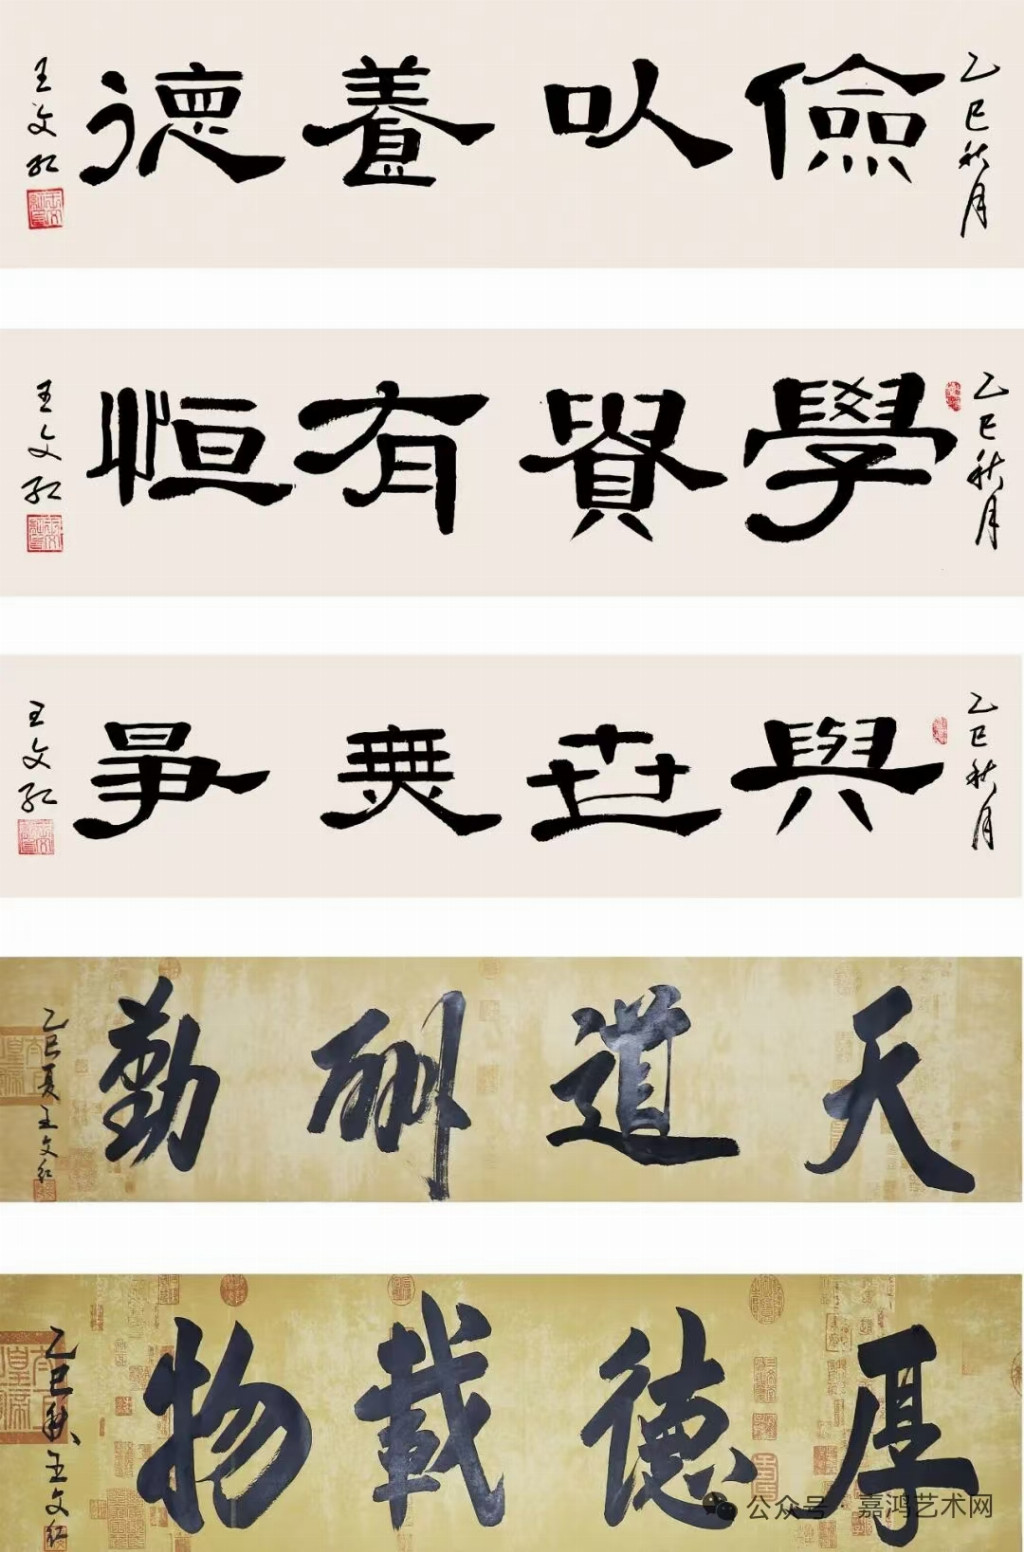 乙巳秋月
儉以養德
王文紅
乙巳秋月
學貴有恒
王文紅
乙巳秋月
與世無爭
王文紅
天道酬勤
乙巳夏王文紅
厚德載物
乙巳秋王文紅
公众号 嘉鸿艺术网